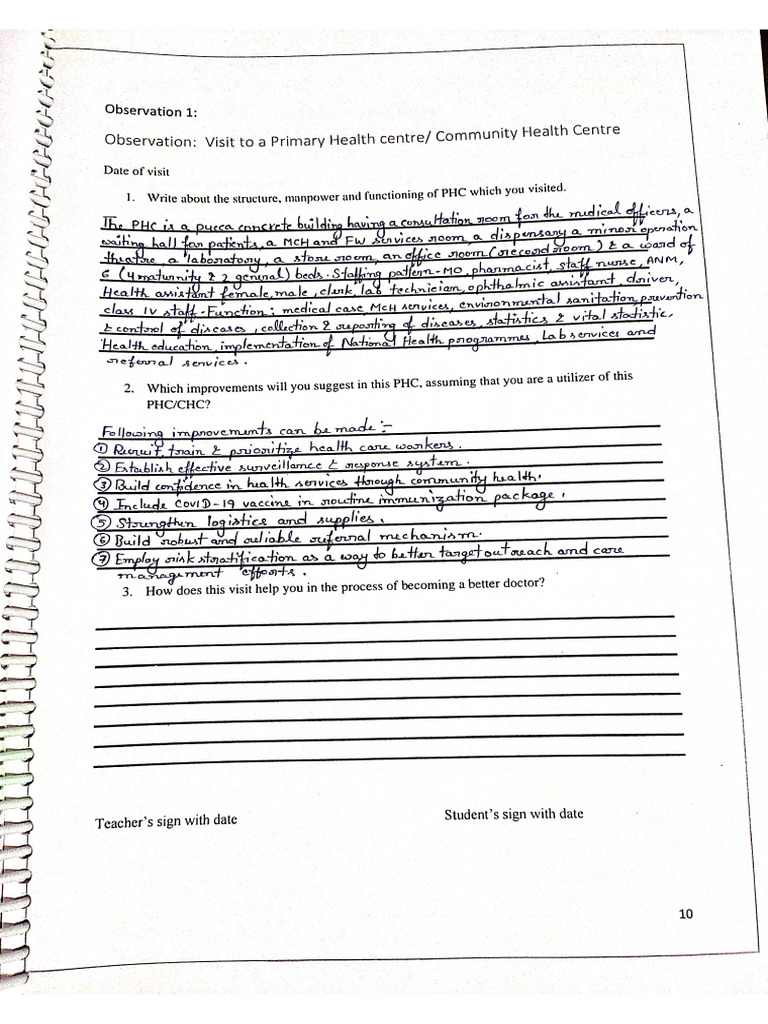 Observation 1:
Observation: Visit to a Primary Health centre/ Community Health Centre
Date of visit
1. Write about the structure, manpower and functioning of PHC which you visited.
The PHC is a pucca concrete building having a consultation room for the medical officers, a
waiting hall for patients, a MCH and FW services room, a dispensary a minor operation
theatre, a laboratory, a store room, an office room (record room) & a ward of
6 (4 maternity & 2 general) beds. Staffing pattern - MO, pharmacist, staff nurse, ANM,
Health assistant female, male, clerk, lab technician, ophthalmic assistant, driver,
class IV staff. Function: medical case MCH services, environmental sanitation, prevention
& control of diseases, collection & reporting of diseases, statistics & vital statistic,
Health education, implementation of National Health programmes, Lab services and
referral services.
2. Which improvements will you suggest in this PHC, assuming that you are a utilizer of this
PHC/CHC?
Following improvements can be made:-
① Recruit, train & prioritize health care workers.
② Establish effective surveillance & response system.
③ Build confidence in health services through community health.
④ Include COVID-19 vaccine in routine immunization package.
⑤ Strengthen logistics and supplies.
⑥ Build robust and reliable referral mechanism.
⑦ Employ risk stratification as a way to better target outreach and care
management efforts.
3. How does this visit help you in the process of becoming a better doctor?
Teacher's sign with date
Student's sign with date
10